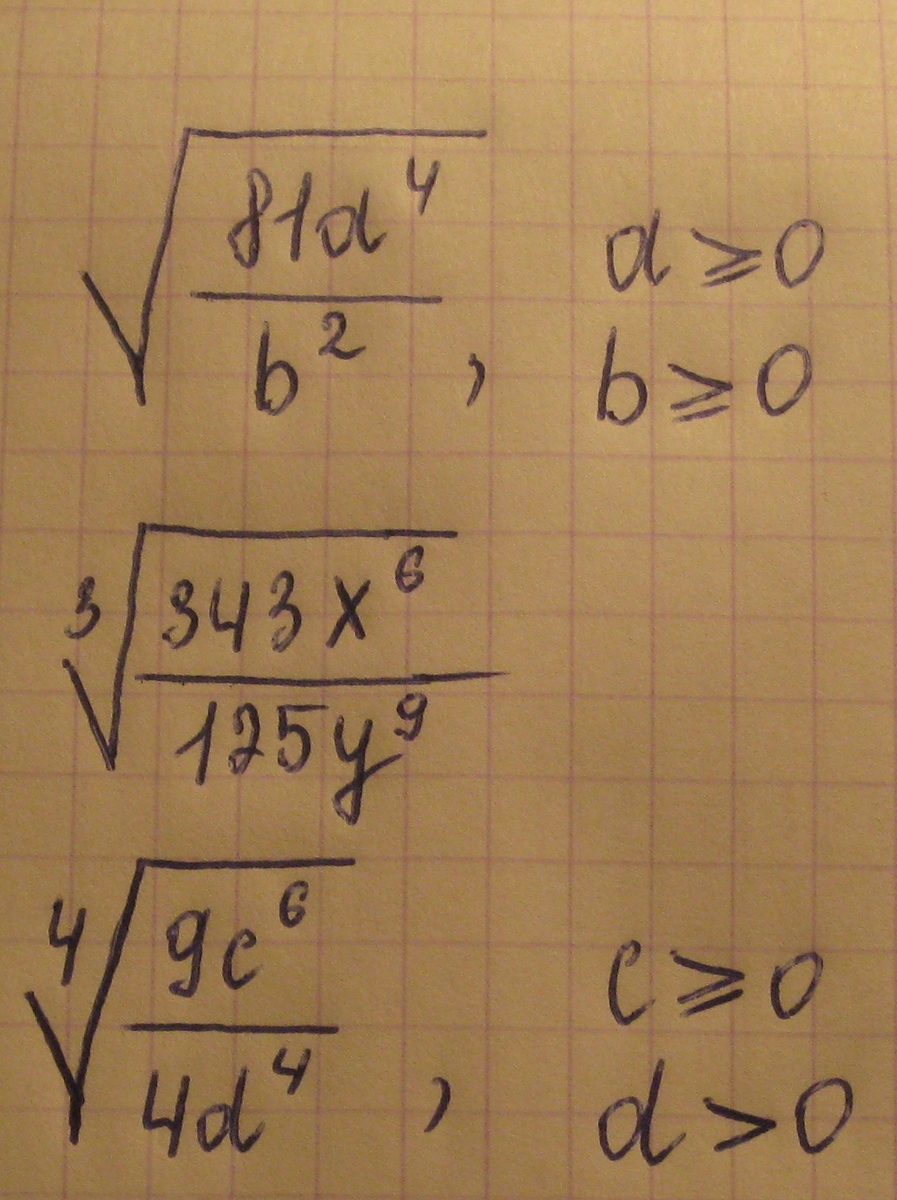 √(81a⁴/b²), a ⩾ 0
b ⩾ 0
∛(343x⁶/125y⁹)
∜(9c⁶/4d⁴), c ⩾ 0
d > 0